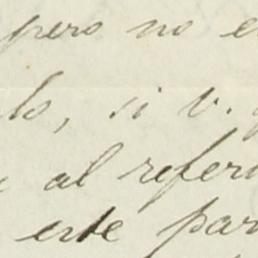 pero no e
lo, si v.
al refer
este par